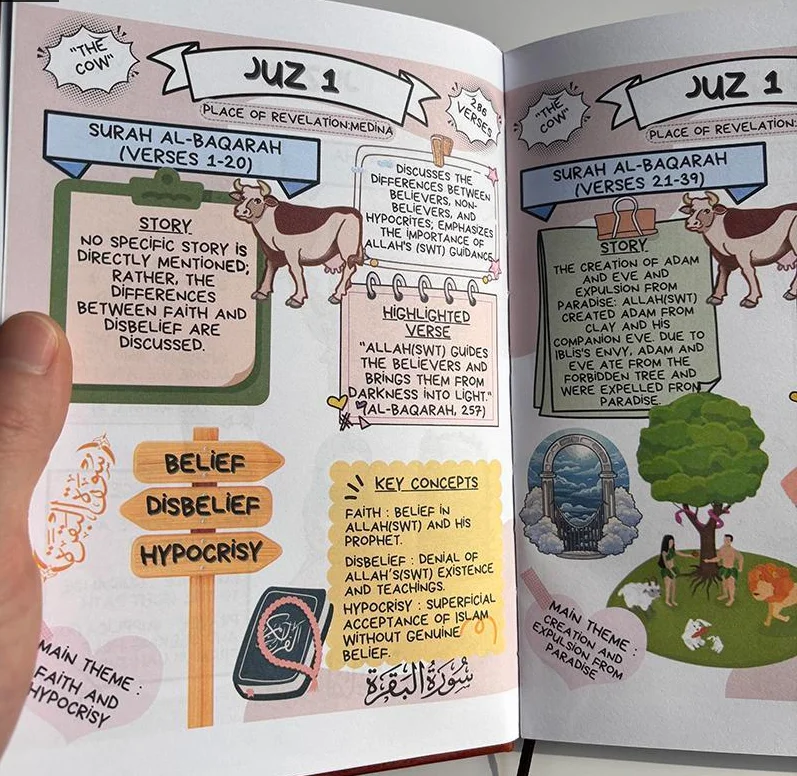 "THE
COW"
JUZ 1
286
VERSES
PLACE OF REVELATION:MEDINA
SURAH AL-BAQARAH
(VERSES 1-20)
STORY
NO SPECIFIC STORY IS
DIRECTLY MENTIONED;
RATHER, THE
DIFFERENCES
BETWEEN FAITH AND
DISBELIEF ARE
DISCUSSED.
DISCUSSES THE
DIFFERENCES BETWEEN
BELIEVERS, NON-
BELIEVERS, AND
HYPOCRITES; EMPHASIZES
THE IMPORTANCE OF
ALLAH'S (SWT) GUIDANCE
HIGHLIGHTED
VERSE
"ALLAH(SWT) GUIDES
THE BELIEVERS AND
BRINGS THEM FROM
DARKNESS INTO LIGHT."
(AL-BAQARAH, 257)
سورة البقرة
BELIEF
DISBELIEF
HYPOCRISY
KEY CONCEPTS
FAITH : BELIEF IN
ALLAH(SWT) AND HIS
PROPHET.
DISBELIEF : DENIAL OF
ALLAH'S(SWT) EXISTENCE
AND TEACHINGS.
HYPOCRISY : SUPERFICIAL
ACCEPTANCE OF ISLAM
WITHOUT GENUINE
BELIEF.
MAIN THEME :
FAITH AND
HYPOCRISY
سُورَةُ البَقَرَة
"THE
COW"
JUZ 1
PLACE OF REVELATION:
SURAH AL-BAQARAH
(VERSES 21-39)
STORY
THE CREATION OF ADAM
AND EVE AND
EXPULSION FROM
PARADISE: ALLAH(SWT)
CREATED ADAM FROM
CLAY AND HIS
COMPANION EVE. DUE TO
IBLIS'S ENVY, ADAM AND
EVE ATE FROM THE
FORBIDDEN TREE AND
WERE EXPELLED FROM
PARADISE.
MAIN THEME :
CREATION AND
EXPULSION FROM
PARADISE